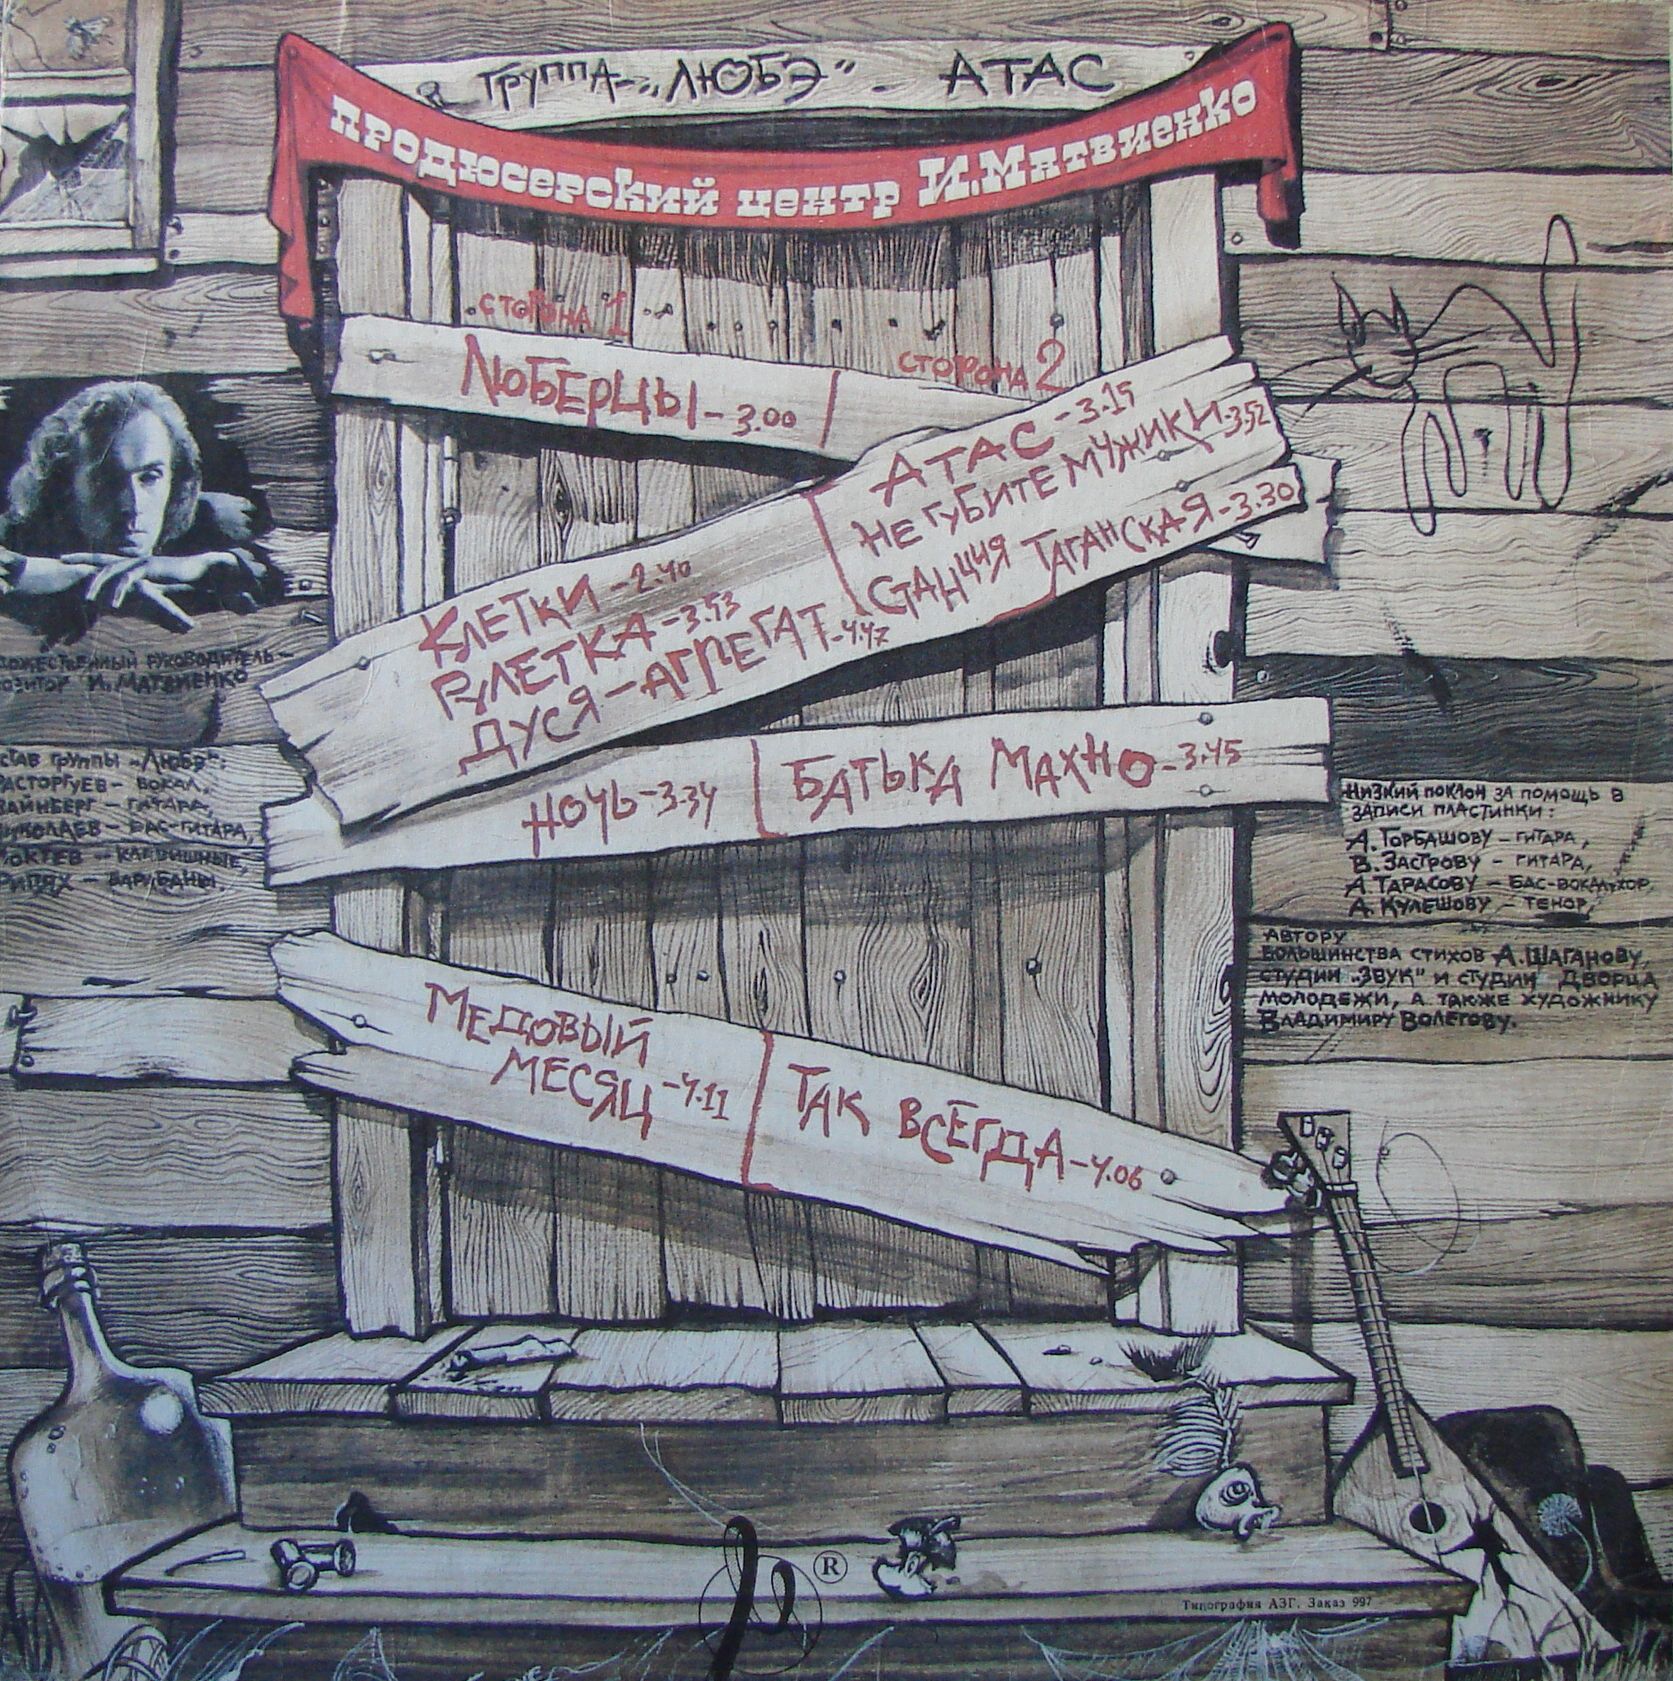 группа „ЛЮБЭ". АТАС
продюсерский центр И.Матвиенко
сторона 1
Люберцы – 3.00
Клетки – 2.40
Рулетка – 3.53
Дуся – агрегат – 4.47
Ночь – 3.34
Медовый
месяц – 4.11
сторона 2
Атас – 3.15
Не губите мужики – 3.52
Станция Таганская – 3.30
Батька Махно – 3.45
Так всегда – 4.06
руководитель –
И. Матвиенко
группы „Любэ":
– вокал,
– гитара,
– бас-гитара,
– клавишные,
– барабаны.
Низкий поклон за помощь в
записи пластинки:
А. Горбашову – гитара,
В. Застрову – гитара,
А. Тарасову – бас-вокал, хор,
А. Кулешову – тенор,
Автору
большинства стихов А. Шаганову,
студии „Звук" и студии Дворца
молодежи, а также художнику
Владимиру Волегову.
®
Типография АЗГ. Заказ 997